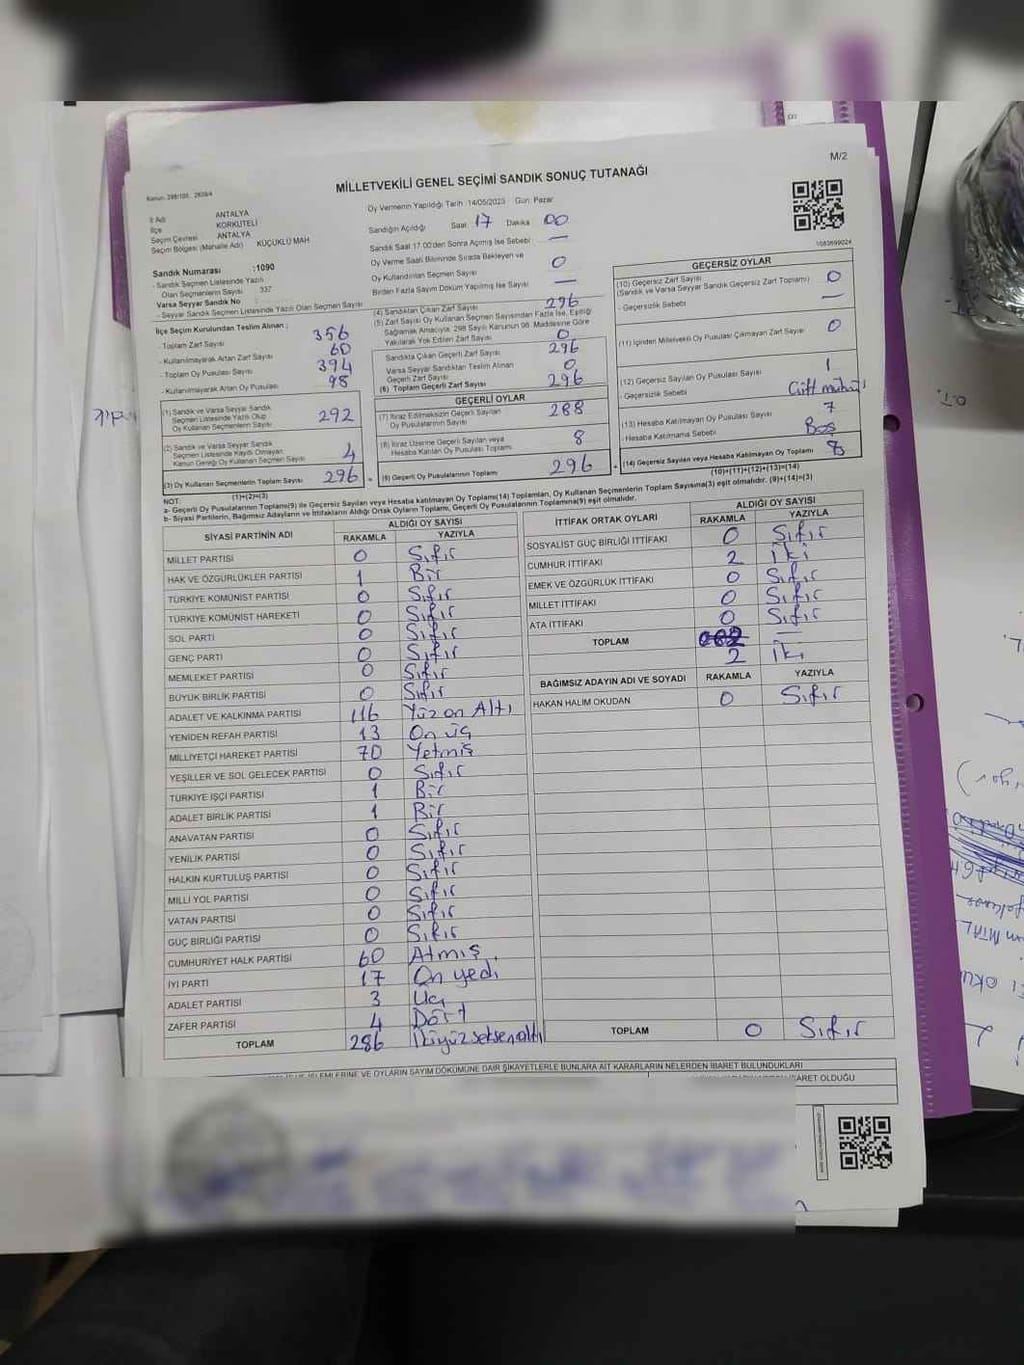 M/2
MİLLETVEKİLİ GENEL SEÇİMİ SANDIK SONUÇ TUTANAĞI
İl Adı ANTALYA
İlçe KORKUTELİ
Seçim Çevresi ANTALYA
Seçim Bölgesi (Mahalle Adı) KÜÇÜKLÜ MAH
Sandık Numarası :1090
- Sandık Seçmen Listesinde Yazılı
Olan Seçmenlerin Sayısı 337
Varsa Seyyar Sandık No
- Seyyar Sandık Seçmen Listesinde Yazılı Olan Seçmen Sayısı
Oy Vermenin Yapıldığı Tarih :14/05/2023 Gün: Pazar
Sandığın Açıldığı Saat 17 Dakika 00
Sandık Saat 17.00'den Sonra Açılmış İse Sebebi : —
Oy Verme Saati Bitiminde Sırada Bekleyen ve
Oy Kullandırılan Seçmen Sayısı 0
Birden Fazla Sayım Döküm Yapılmış İse Sayısı —
1083699024
İlçe Seçim Kurulundan Teslim Alınan :
- Toplam Zarf Sayısı 356
- Kullanılmayarak Artan Zarf Sayısı 60
- Toplam Oy Pusulası Sayısı 394
- Kullanılmayarak Artan Oy Pusulası 98
(1) Sandık ve Varsa Seyyar Sandık
Seçmen Listesinde Yazılı Olup
Oy Kullanan Seçmenlerin Sayısı 292
(2) Sandık ve Varsa Seyyar Sandık
Seçmen Listesinde Kayıtlı Olmayan
Kanun Gereği Oy Kullanan Seçmen Sayısı 4
(3) Oy Kullanan Seçmenlerin Toplam Sayısı 296
(1)+(2)=(3)
(4) Sandıktan Çıkan Zarf Sayısı 296
(5) Zarf Sayısı Oy Kullanan Seçmen Sayısından Fazla İse, Eşitliği
Sağlamak Amacıyla, 298 Sayılı Kanunun 98. Maddesine Göre
Yakılarak Yok Edilen Zarf Sayısı 0
Sandıkta Çıkan Geçerli Zarf Sayısı 296
Varsa Seyyar Sandıktan Teslim Alınan
Geçerli Zarf Sayısı 0
(6) Toplam Geçerli Zarf Sayısı 296
GEÇERLİ OYLAR
(7) İtiraz Edilmeksizin Geçerli Sayılan
Oy Pusulasının Sayısı 288
(8) İtiraz Üzerine Geçerli Sayılan veya
Hesaba Katılan Oy Pusulası Toplamı 8
(9) Geçerli Oy Pusulalarının Toplamı 296
GEÇERSİZ OYLAR
(10) Geçersiz Zarf Sayısı 0
(Sandık ve Varsa Seyyar Sandık Geçersiz Zarf Toplamı)
- Geçersizlik Sebebi —
(11) İçinden Milletvekili Oy Pusulası Çıkmayan Zarf Sayısı 0
(12) Geçersiz Sayılan Oy Pusulası Sayısı 1
- Geçersizlik Sebebi Çift mühür
(13) Hesaba Katılmayan Oy Pusulası Sayısı 7
- Hesaba Katılmama Sebebi Boş
(14) Geçersiz Sayılan veya Hesaba Katılmayan Oy Toplamı 8
(10)+(11)+(12)+(13)=(14)
NOT:
a- Geçerli Oy Pusulalarının Toplamı(9) ile Geçersiz veya Hesaba katılmayan Oy Toplamı(14) Toplamları, Oy Kullanan Seçmenlerin Toplam Sayısına(3) eşit olmalıdır. (9)+(14)=(3)
b- Siyasi Partilerin, Bağımsız Adayların ve İttifakların Aldığı Ortak Oyların Toplamı, Geçerli Oy Pusulalarının Toplamına(9) eşit olmalıdır.
SİYASİ PARTİNİN ADI ALDIĞI OY SAYISI
RAKAMLA YAZIYLA
MİLLET PARTİSİ 0 Sıfır
HAK VE ÖZGÜRLÜKLER PARTİSİ 1 Bir
TÜRKİYE KOMÜNİST PARTİSİ 0 Sıfır
TÜRKİYE KOMÜNİST HAREKETİ 0 Sıfır
SOL PARTİ 0 Sıfır
GENÇ PARTİ 0 Sıfır
MEMLEKET PARTİSİ 0 Sıfır
BÜYÜK BİRLİK PARTİSİ 0 Sıfır
ADALET VE KALKINMA PARTİSİ 116 Yüz on Altı
YENİDEN REFAH PARTİSİ 13 On üç
MİLLİYETÇİ HAREKET PARTİSİ 70 Yetmiş
YEŞİLLER VE SOL GELECEK PARTİSİ 0 Sıfır
TÜRKİYE İŞÇİ PARTİSİ 1 Bir
ADALET BİRLİK PARTİSİ 1 Bir
ANAVATAN PARTİSİ 0 Sıfır
YENİLİK PARTİSİ 0 Sıfır
HALKIN KURTULUŞ PARTİSİ 0 Sıfır
MİLLİ YOL PARTİSİ 0 Sıfır
VATAN PARTİSİ 0 Sıfır
GÜÇ BİRLİĞİ PARTİSİ 0 Sıfır
CUMHURİYET HALK PARTİSİ 60 Atmış
İYİ PARTİ 17 On yedi
ADALET PARTİSİ 3 Üç
ZAFER PARTİSİ 4 Dört
TOPLAM 286 İkiyüzseksenaltı
İTTİFAK ORTAK OYLARI ALDIĞI OY SAYISI
RAKAMLA YAZIYLA
SOSYALİST GÜÇ BİRLİĞİ İTTİFAKI 0 Sıfır
CUMHUR İTTİFAKI 2 İki
EMEK VE ÖZGÜRLÜK İTTİFAKI 0 Sıfır
MİLLET İTTİFAKI 0 Sıfır
ATA İTTİFAKI 0 Sıfır
TOPLAM —
2 İki
BAĞIMSIZ ADAYIN ADI VE SOYADI RAKAMLA YAZIYLA
HAKAN HALİM OKUDAN 0 Sıfır
TOPLAM 0 Sıfır
İŞLEMLERİNE VE OYLARIN SAYIM DÖKÜMÜNE DAİR ŞİKAYETLERLE BUNLARA AİT KARARLARIN NELERDEN İBARET BULUNDUKLARI